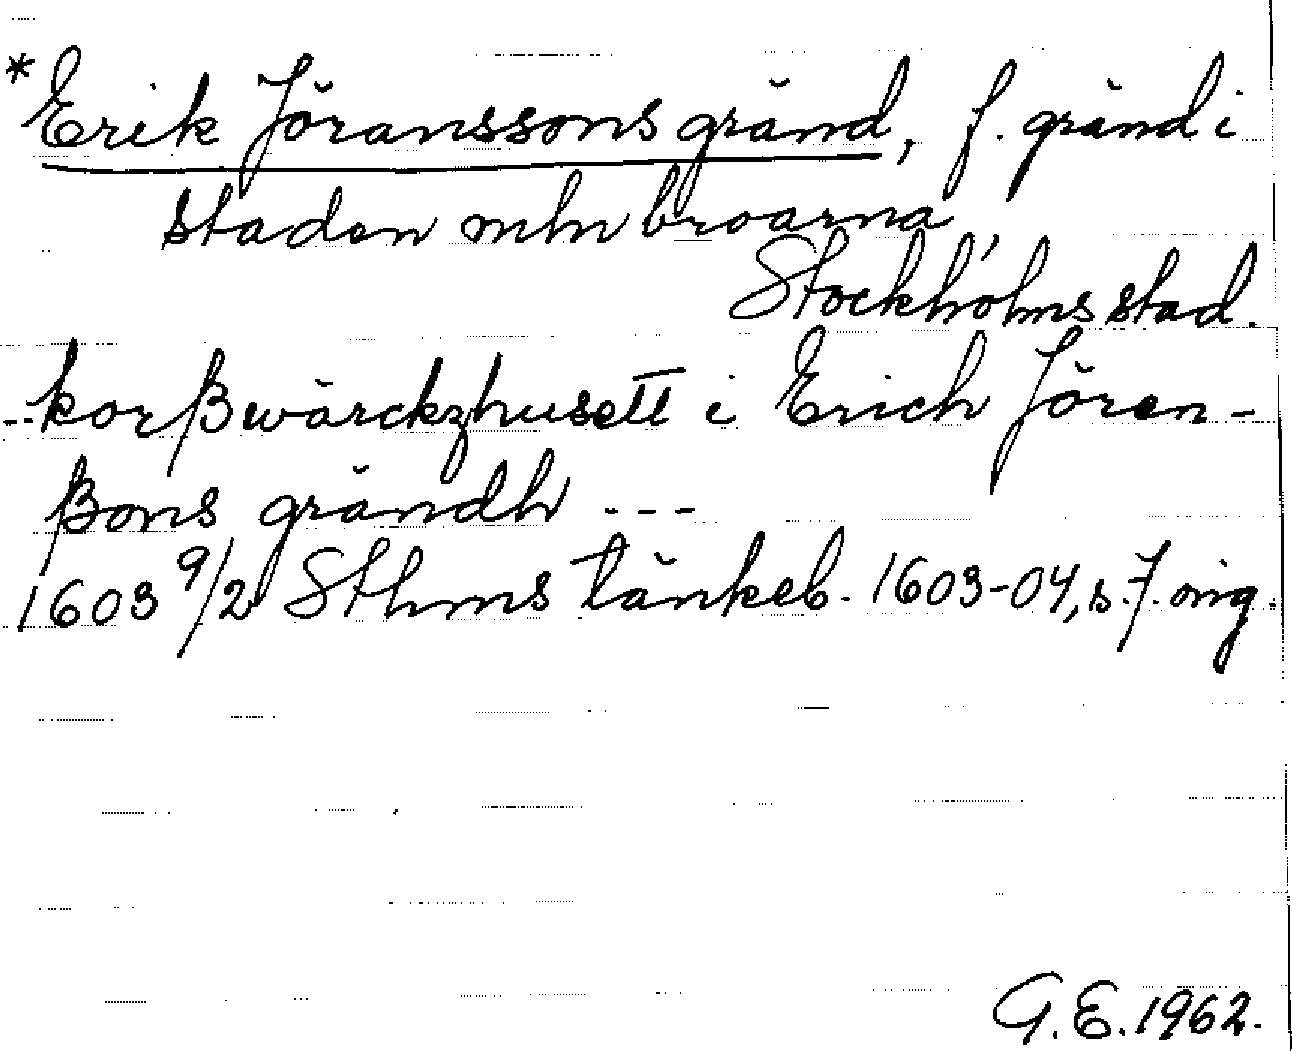 *Erik Jöranssons gränd, f. gränd i
staden mln broarna,
Stockholms stad.
--korßwärckzhusett i Erich Jören-
ßons grändh ---
1603 9/2 Sthms tänkeb. 1603-04, s. 7. mig.
G.E. 1962.